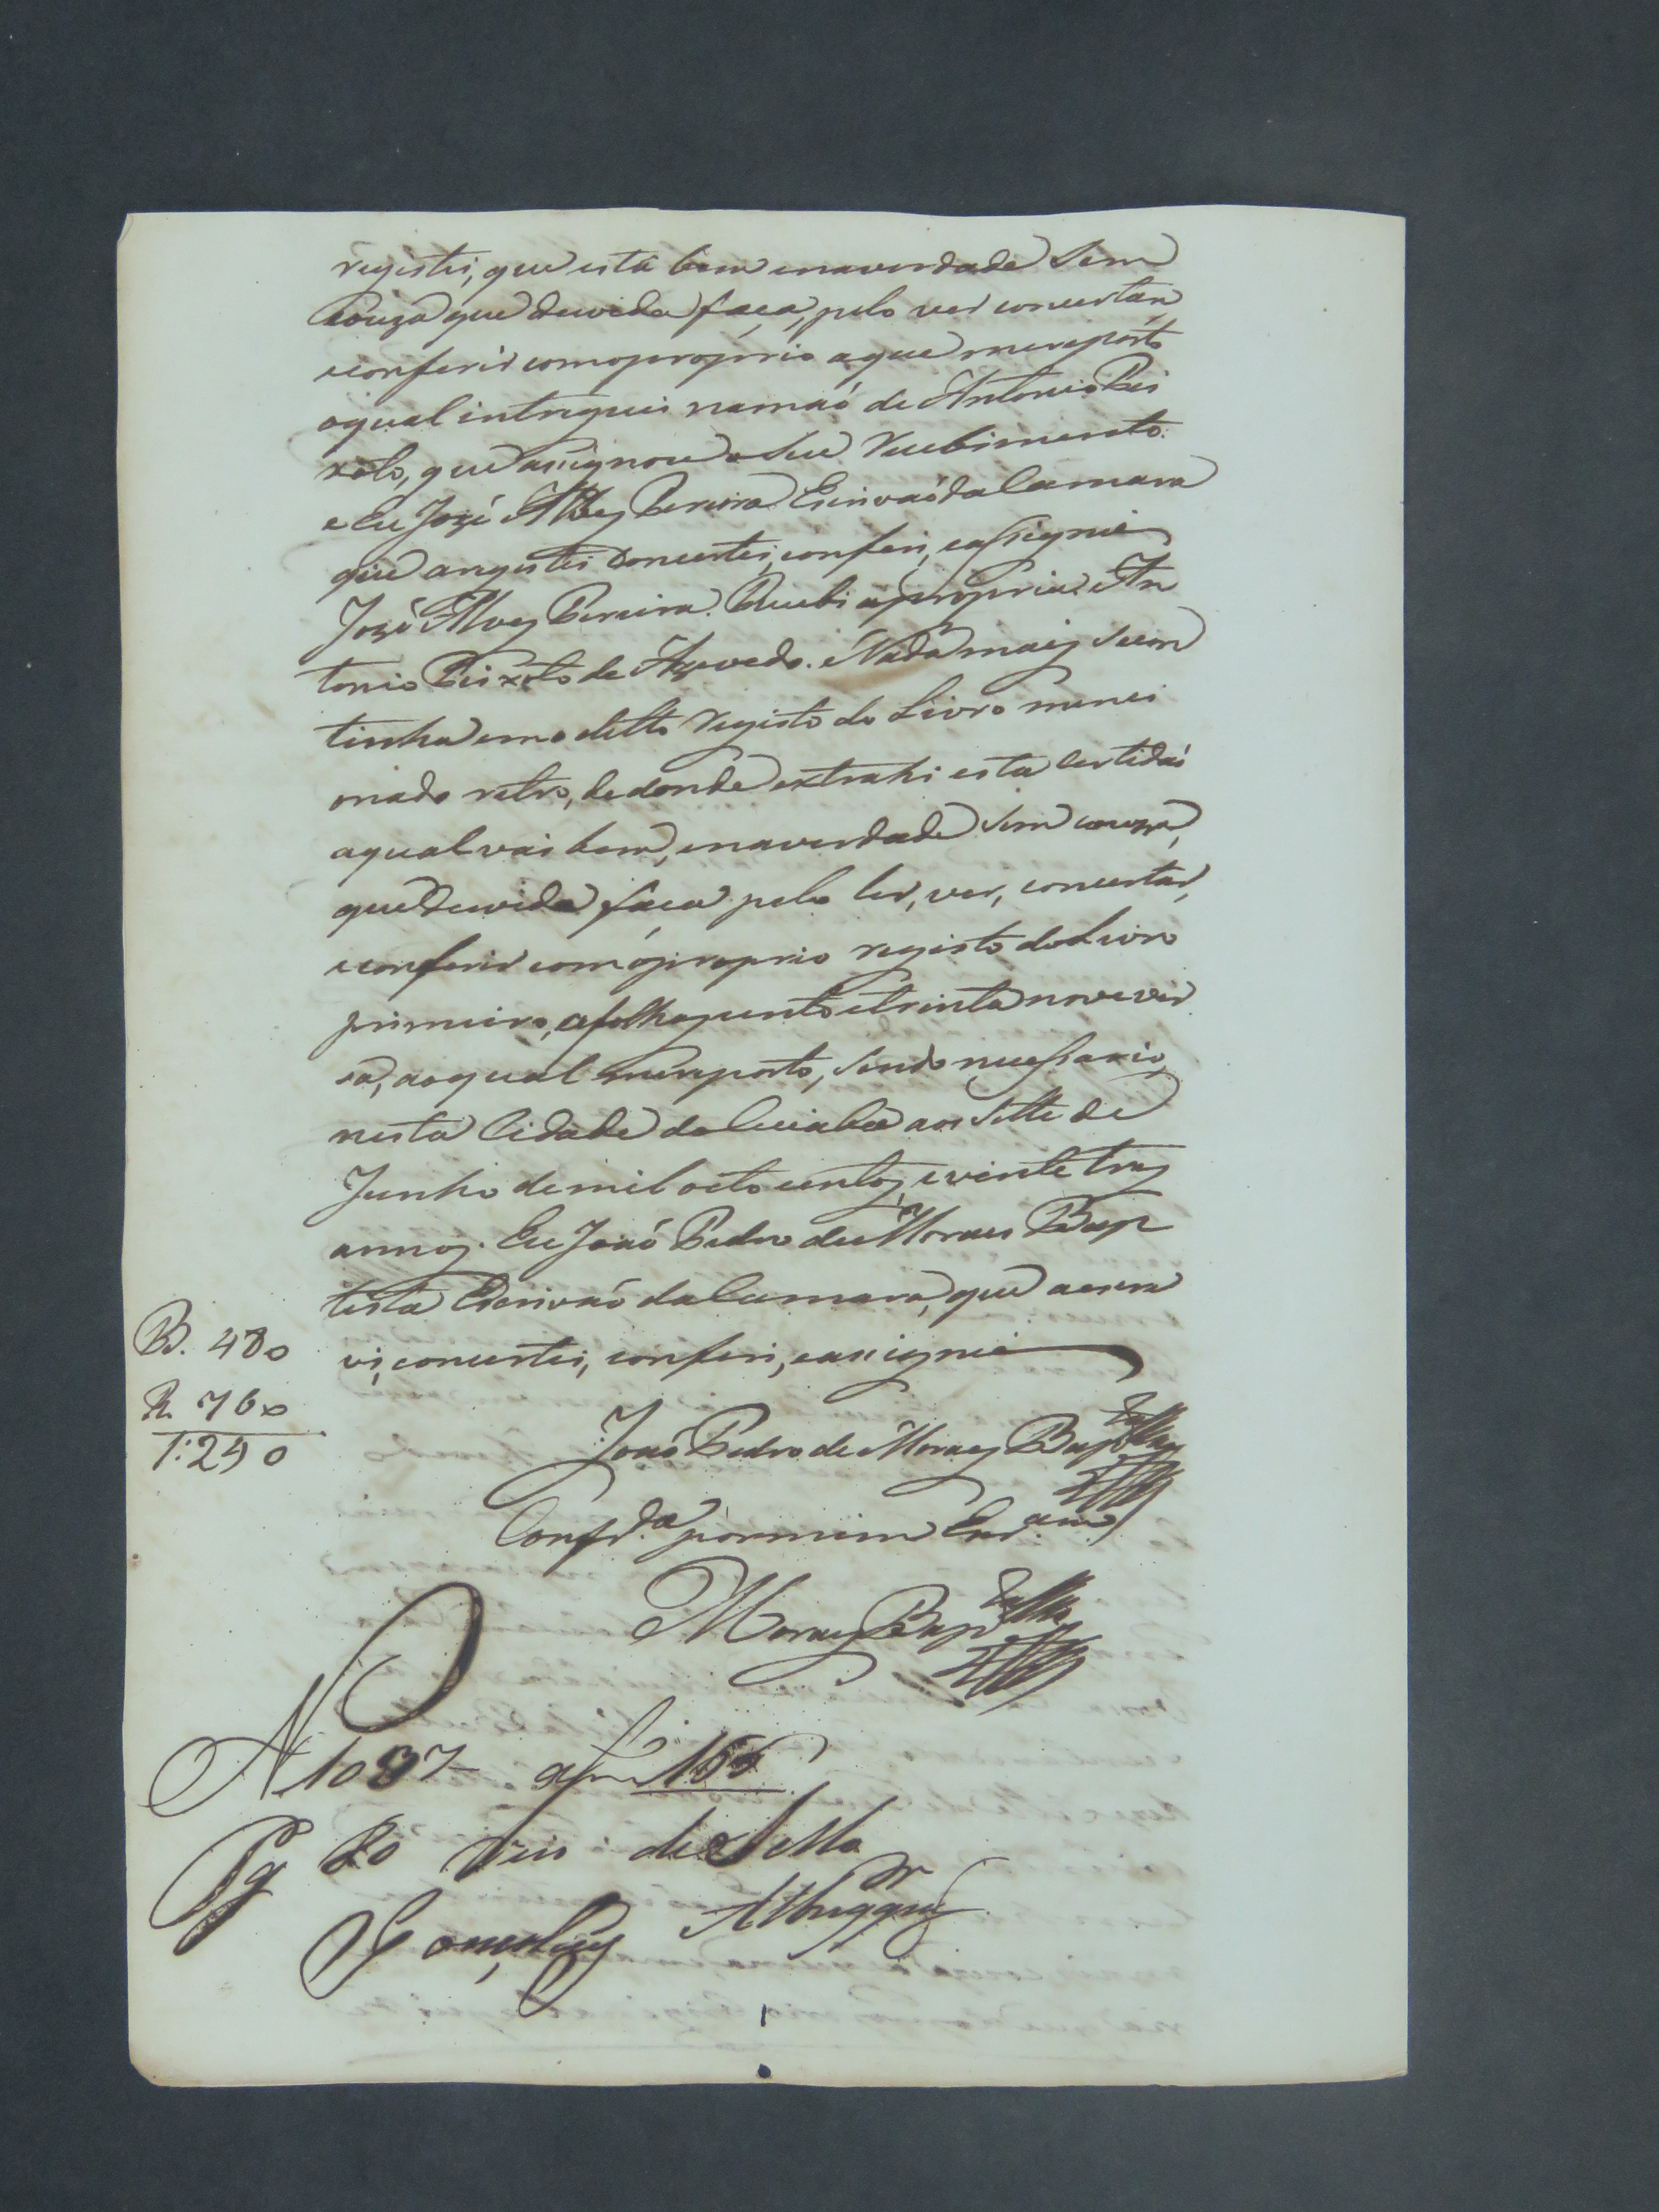 registei, que está bem enaverdade sem
couza que duvida faça, pelo ver concertar,
econferir comoproprio aque mereporto
oqual intreguei namaõ de Antonio Pei
xoto, que assignou o seu recibimento.
e Eu José Alvez Pereira Escrivaõ da Camara
que aregistei concertei, conferi, eassignei
José Alvez Pereira. Recebi apropria An
tonio Peixoto de Azevedo. Nada mais secon
tinha emo ditto registo do Livro menci
onado retro, dedonde extrahi esta certidaõ
aqual vai bem, enaverdade sem couza,
que duvida faça pelo ler, ver, concertar,
econferir com oproprio registo do Livro
primeiro, afolhas cento etrinta nove ver
so, aoqual mereporto, sendo necessario,
nesta Cidade do Cuiabá aos sette de
Junho de mil oito centos, e vinte tres
annos. Eu Joaõ Pedro de Moraes Bap
tista Escrivaõ da Camara, que aescre
vi, concertei, conferi, eassignei
B. 480
R. 760
1:240
Joaõ Pedro de Moraes Bap.ta
Confd.a pormim Esc.am
Moraes Bap.ta
N 1037 af 166
Pg 80 reis de Sello
Gonçalves Albuqq.r